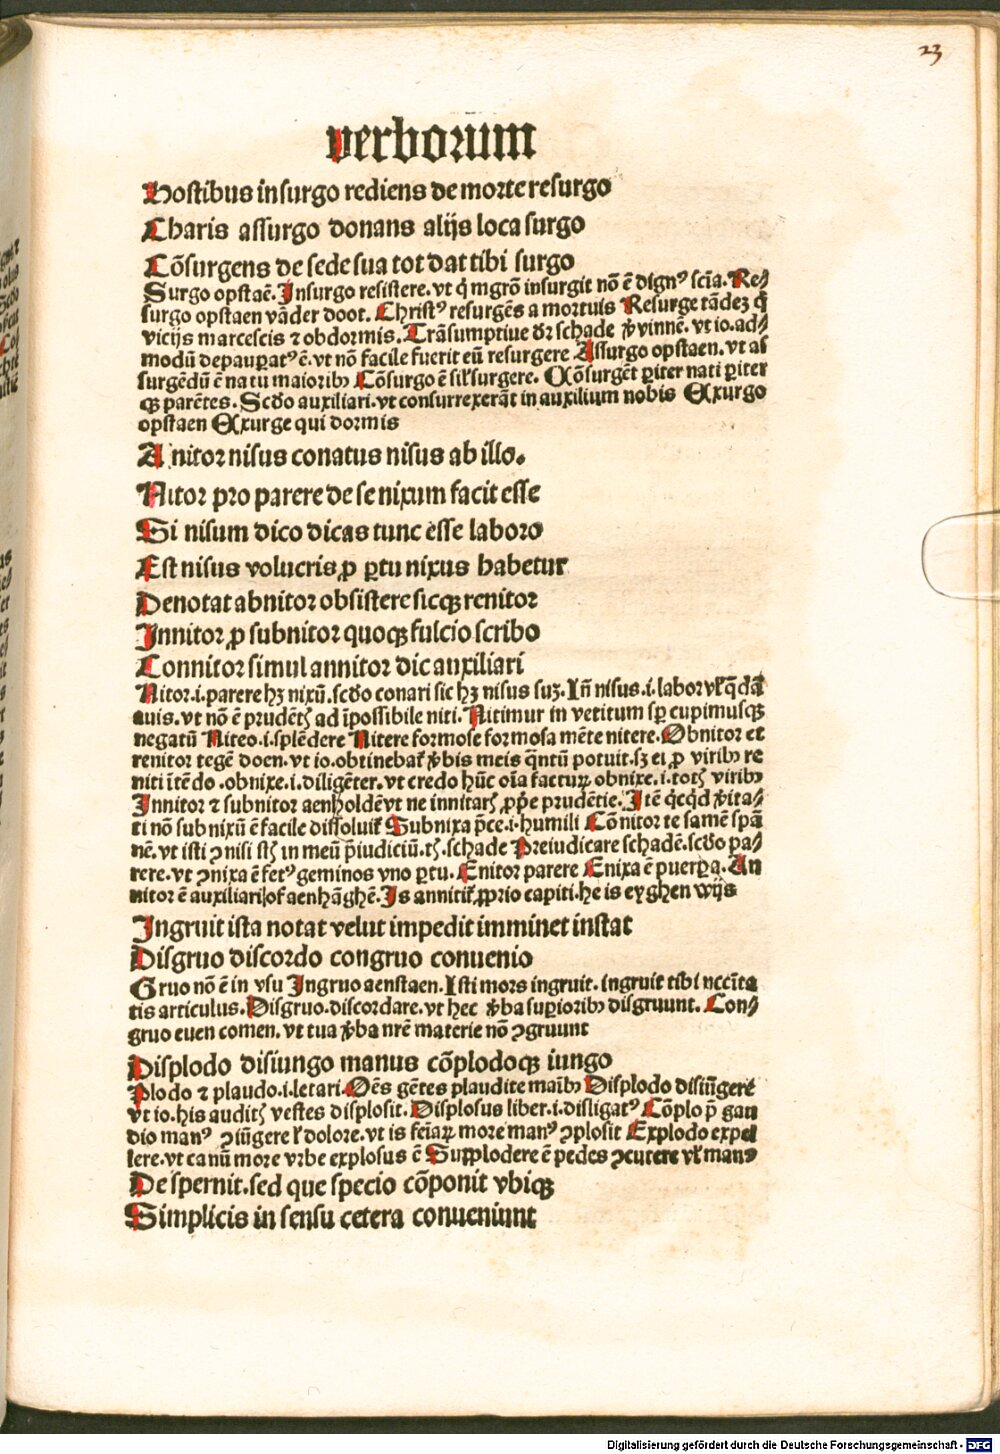 23
verborum
Hostibus insurgo rediens de morte resurgo
Charis assurgo donans alijs loca surgo
Cōsurgens de sede sua tot dat tibi surgo
Surgo opstaē. Insurgo resistere. vt q̇ mgrōn insurgit nō ē dignꝰ scīa. Re⸗
surgo opstaen vāder doot. Christꝰ resurgēs a mortuis Resurge tādeꝫ q̇
vicijs marcescis ⁊ obdormis. Trāsumptiue dꝛ schade ꝟvinnē. vt io. ad⸗
modū depauꝑatꝰ ē. vt nō facile fuerit eū resurgere Assurgo opstaen. vt as
surgēdū ē natu maioribꝫ Cōsurgo ē sil̕ surgere. Cōsurgēt ꝑiter nati ꝑiter
qꝫ parētes. Scd̕o auxiliari. vt consurrexerāt in auxilium nobis Exurgo
opstaen Exurge qui dormis
A nitor nisus conatus nisus ab illo.
Nitor pro parere de se nixum facit esse
Si nisum dico dicas tunc esse laboro
Est nisus volucris ꝓ ꝑtu nixus habetur
Denotat abnitor obsistere sicqꝫ renitor
Innitor ꝓ subnitor quoqꝫ fulcio scribo
Connitor simul annitor dic auxiliari
Nitor .i. parere hꝫ nixū. scd̕o conari sic hꝫ nisus suꝫ. Iñ nisus .i. labor vl̕ q̄dā
auis. vt nō ē prudētꝭ ad īpossibile niti. Nitimur in vetitum sꝑ cupimusqꝫ
negatū Niteo .i. splēdere Nitere formose formosa mēte nitere. Obnitor et
renitor tegē doen. vt io. obtinebat̕ ꝟbis meis q̄ntū potuit. sꝫ ei ꝓ viribꝫ re
niti ītēdo. obnixe .i. diligēter. vt credo hūc oīa facturꝝ obnixe .i. totꝭ viribꝫ
Innitor ⁊ subnitor aenholdē vt ne innitarꝭ ꝓpē prudētie. Itē qcqd ꝟita⸗
ti nō subnixū ē facile dissoluit̕ Subnixa p̄ce .i. humili Cōnitor te samē spā
nē. vt isti ꝯnisi stꝭ in meū p̄iudiciū. tꝭ. schade Preiudicare schadē. scd̕o pa⸗
rere. vt ꝯnixa ē fetꝰ geminos vno ꝑtu. Enitor parere Enixa ē puerꝑa. An
nitor ē auxiliari of aenhāghē. Is annitit̕ ꝓprio capiti. he is eyghen wijs
Ingruit ista notat velut impedit imminet instat
Disgruo discordo congruo conuenio
Gruo nō ē in vsu Ingruo aenstaen. Isti mors ingruit. ingruit tibi nccīta
tis articulus. Disgruo. discordare. vt hec ꝟba suꝑioribꝫ disgruunt. Con⸗
gruo euen comen. vt tua ꝟba nrē materie nō ꝯgruunt
Displodo disiungo manus cōplodoqꝫ iungo
Plodo ⁊ plaudo .i. letari. Oēs gētes plaudite maībꝫ Displodo disiūgere
vt io. his auditꝭ vestes displosit. Displosus liber .i. disligatꝰ Cōplo p̄ gau
dio manꝰ ꝯiūgere l̕ dolore. vt is feīaꝝ more manꝰ ꝯplosit Explodo expel
lere. vt canū more vrbe explosus ē Supplodere ē pedes ꝯcutere vl̕ manꝰ
De spernit. sed que specio cōponit vbiqꝫ
Simplicis in sensu cetera conueniunt
Digitalisierung gefördert durch die Deutsche Forschungsgemeinschaft - DFG